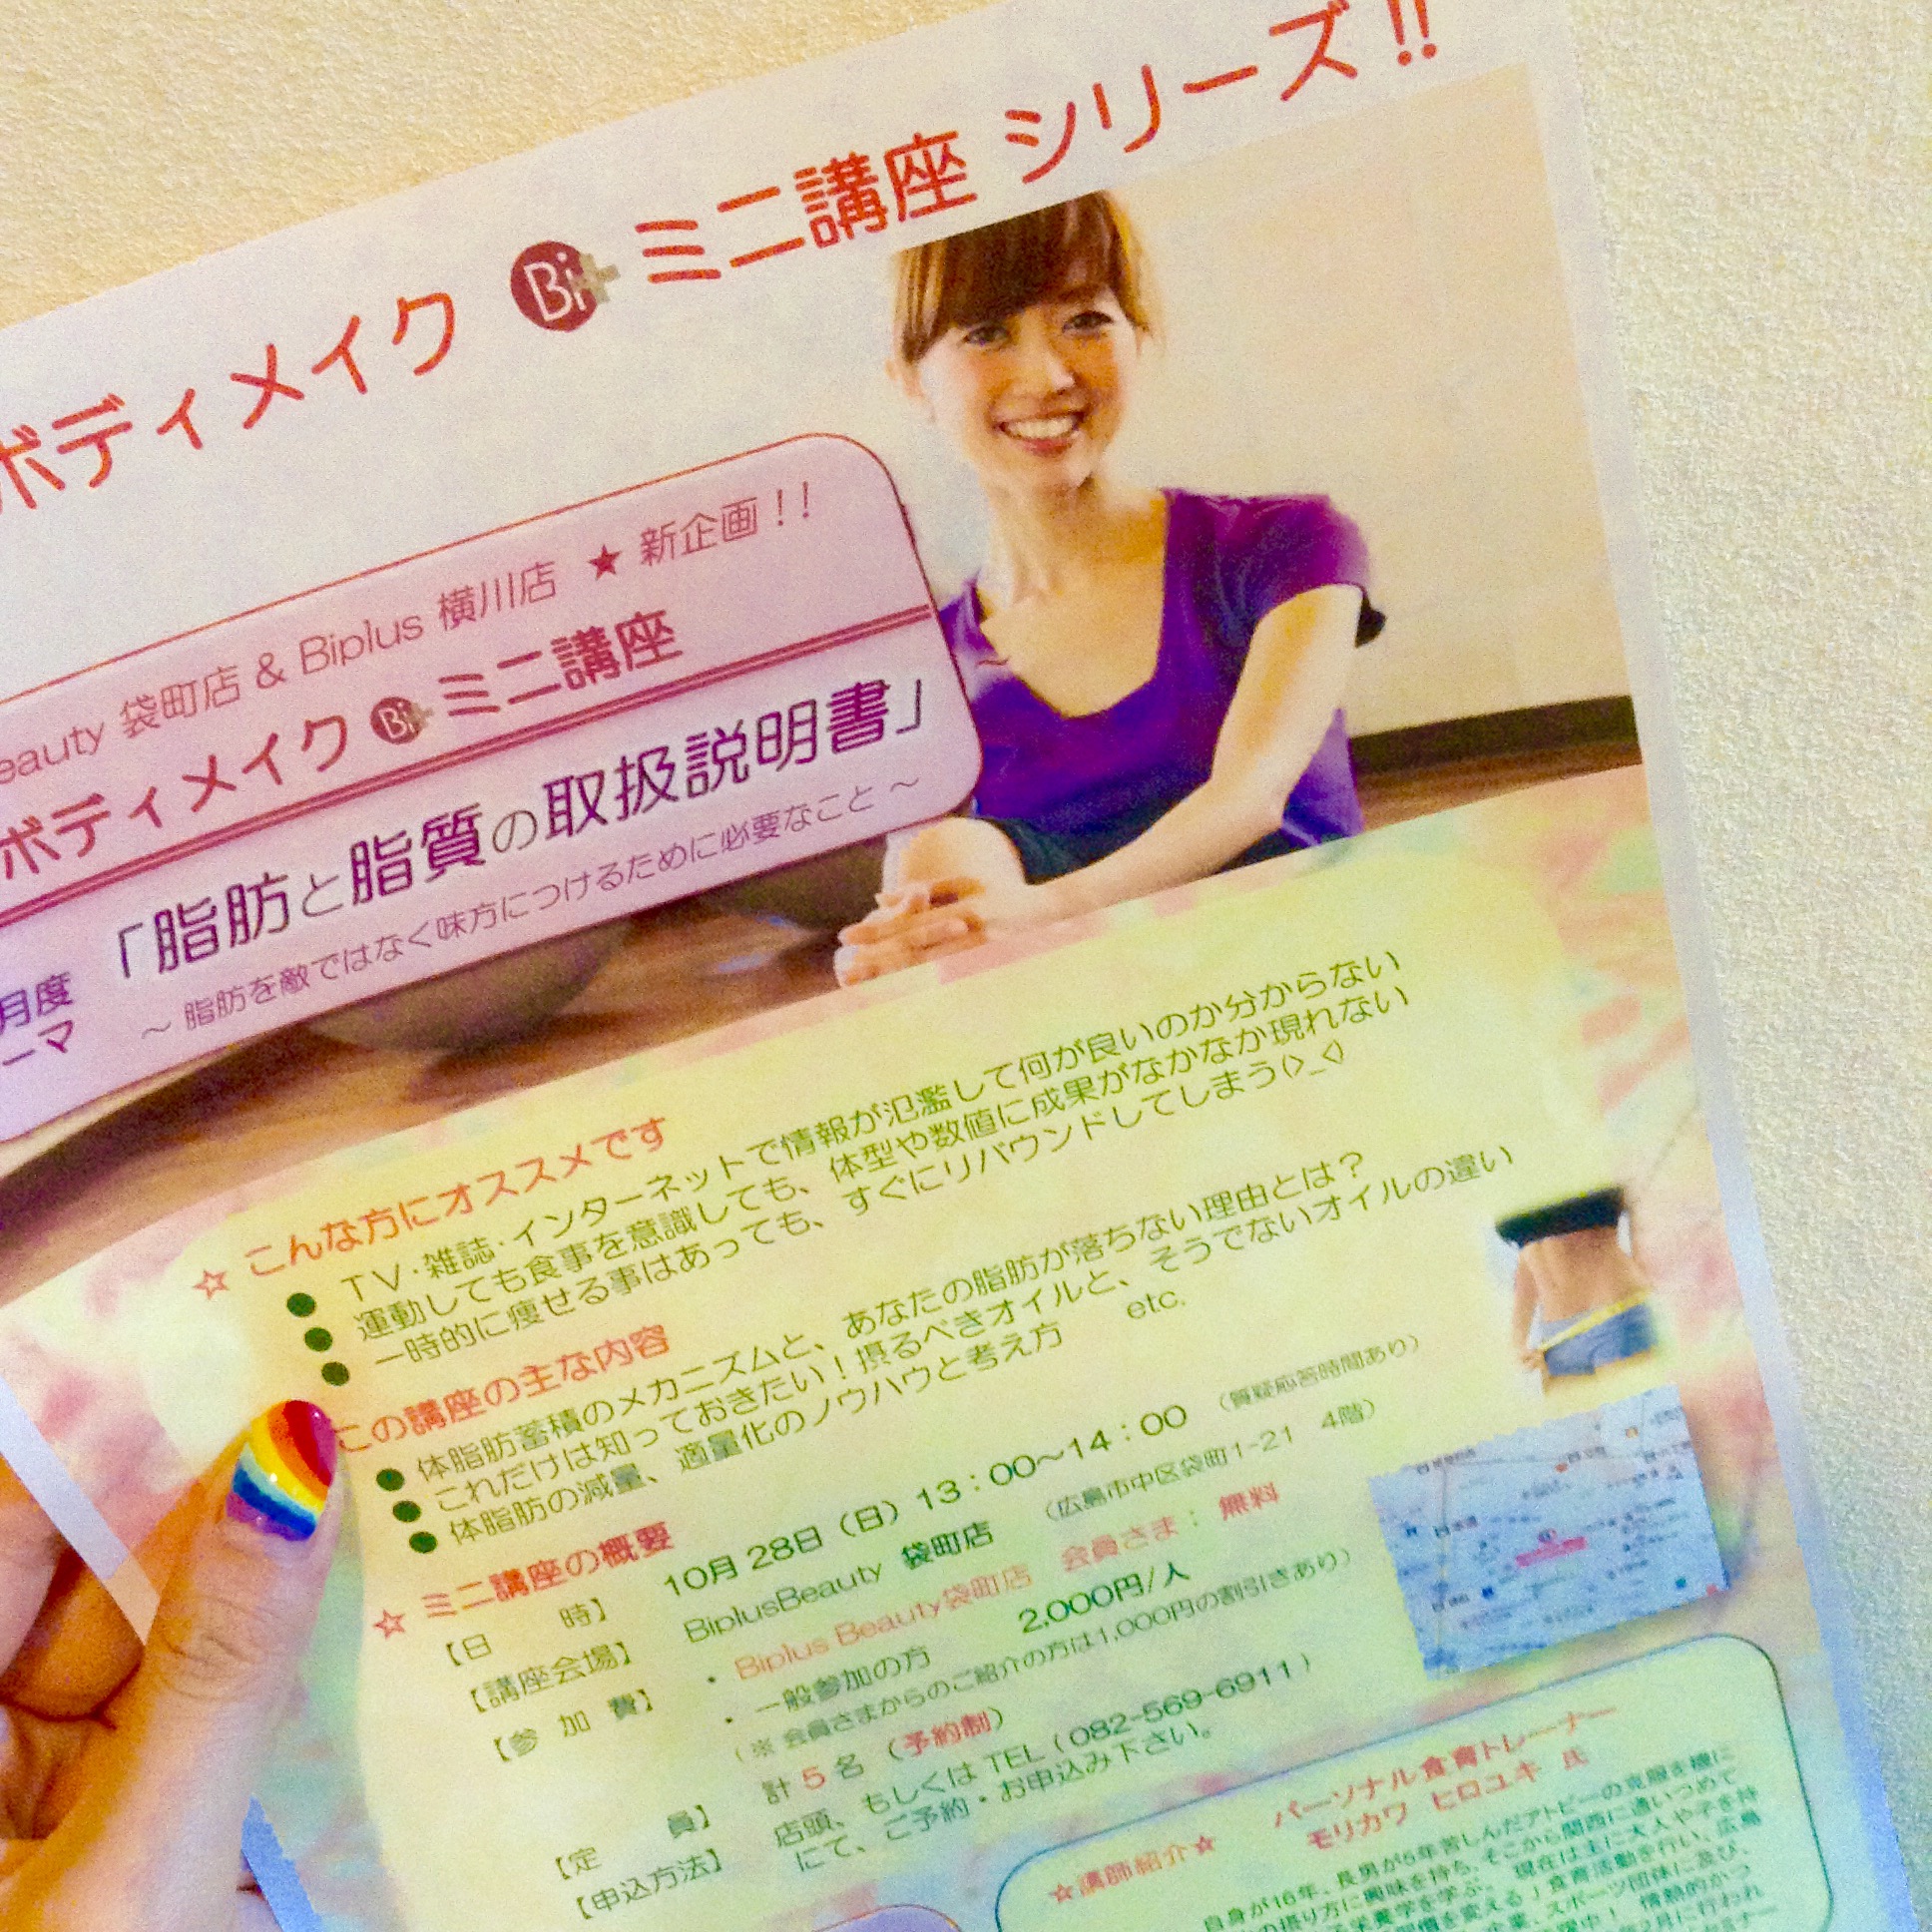 ボディメイク Bi+ ミニ講座 シリーズ!!
eauty 袋町店 & Biplus 横川店 ★ 新企画!!
ボディメイク Bi+ ミニ講座
月度
ーマ
「脂肪と脂質の取扱説明書」
~ 脂肪を敵ではなく味方につけるために必要なこと ~
☆ こんな方にオススメです
● TV・雑誌・インターネットで情報が氾濫して何が良いのか分からない
● 運動しても食事を意識しても、体型や数値に成果がなかなか現れない
● 一時的に痩せる事はあっても、すぐにリバウンドしてしまう(>_<)
この講座の主な内容
● 体脂肪蓄積のメカニズムと、あなたの脂肪が落ちない理由とは?
● これだけは知っておきたい!摂るべきオイルと、そうでないオイルの違い
● 体脂肪の減量、適量化のノウハウと考え方 etc.
☆ ミニ講座の概要
【日 時】 10月 28日(日)13:00~14:00 (質疑応答時間あり)
【講座会場】 BiplusBeauty 袋町店 (広島市中区袋町1-21 4階)
【参 加 費】 ・ Biplus Beauty袋町店 会員さま: 無料
・ 一般参加の方 2,000円/人
(※ 会員さまからのご紹介の方は1,000円の割引きあり)
【定 員】 計 5 名 (予約制)
【申込方法】 店頭、もしくは TEL (082-569-6911)
にて、ご予約・お申込み下さい。
☆講師紹介☆
パーソナル食育トレーナー
モリカワ ヒロユキ 氏
自身が16年、長男が5年苦しんだアトピーの克服を機に
の摂り方に興味を持ち、そこから関西に通いつめて